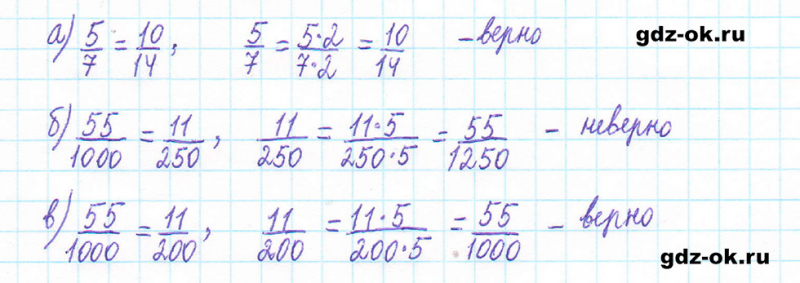 а) 5/7 = 10/14, 5/7 = 5·2/7·2 = 10/14 – верно
gdz-ok.ru
б) 55/1000 = 11/250, 11/250 = 11·5/250·5 = 55/1250 – неверно
в) 55/1000 = 11/200, 11/200 = 11·5/200·5 = 55/1000 – верно
gdz-ok.ru